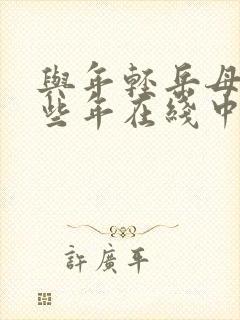 與年輕岳母
些年在綫中
許廣平